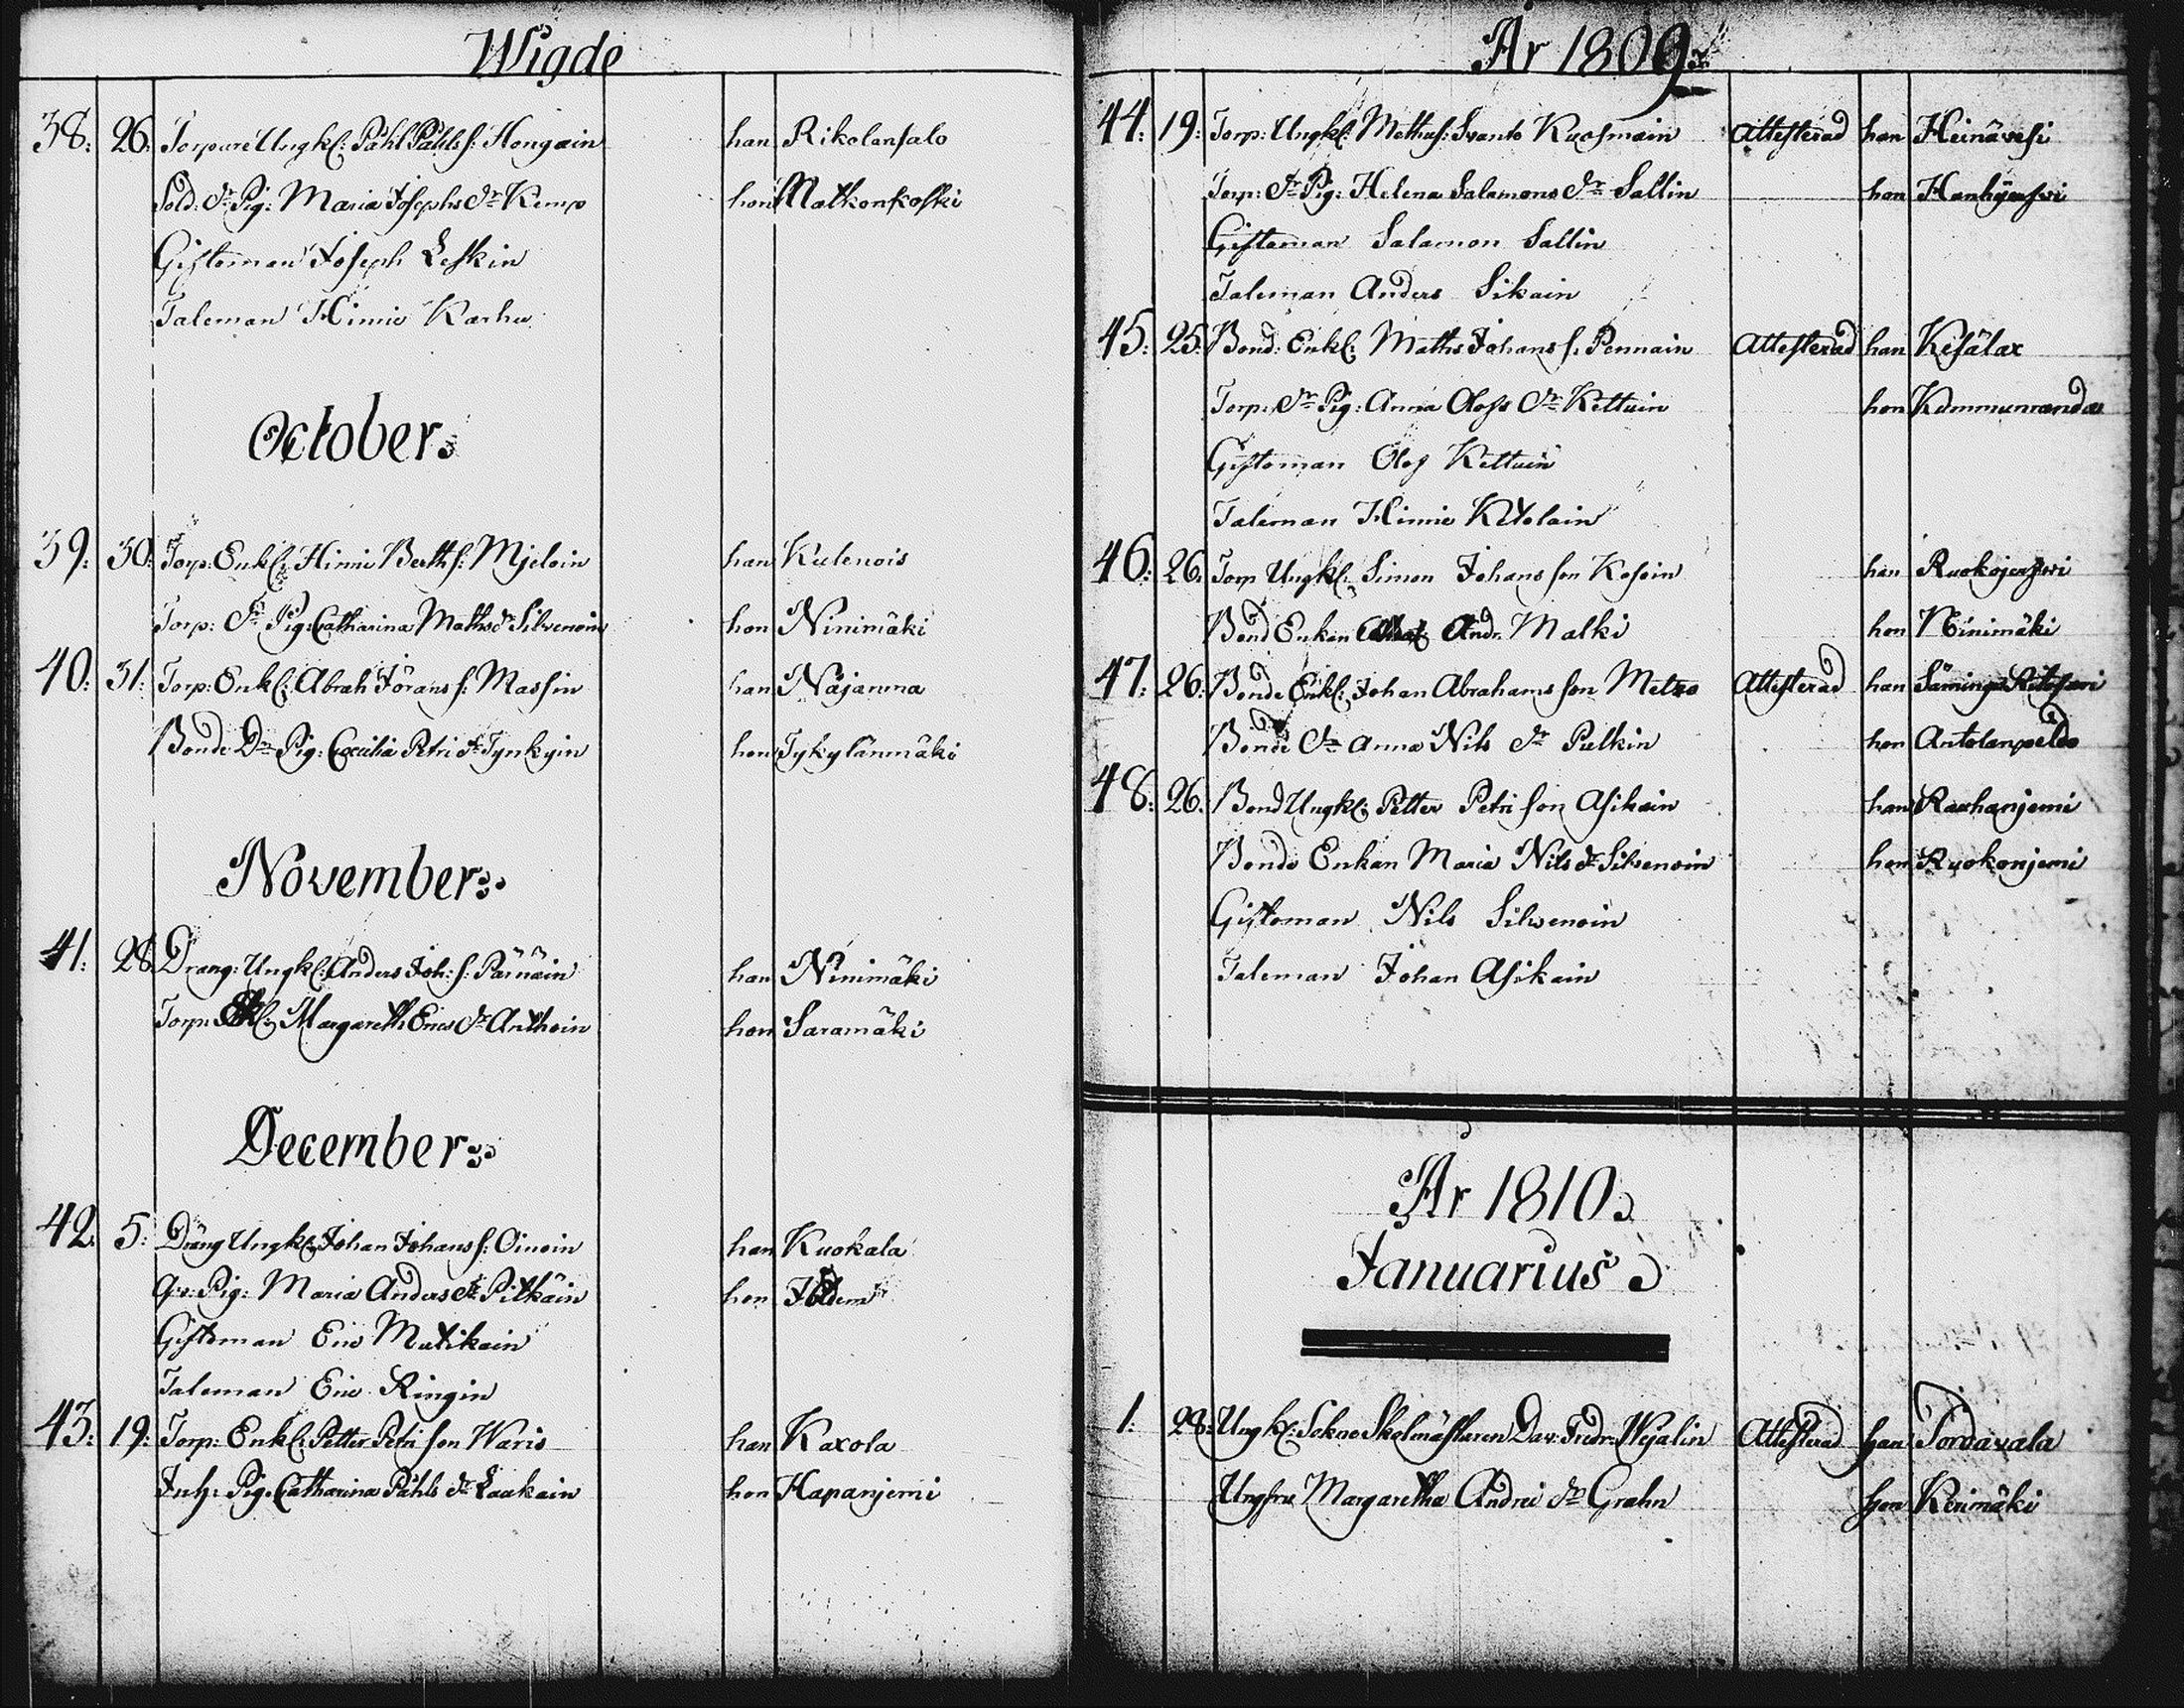 Wigde
38: 26. Torpare Ungk: Påhl Påhls s: Hongain han Rikolansalo
Sold: dr Pig: Maria Josephs dr Kemp hon Matkonkoski
Giftoman Joseph Leskin
Taleman Hinric Karhu
October:
39: 30: Torp: Enkl: Hinric Berth s: Mjeloin han Kulenois
Torp: dr Pig: Catharina Maths dr Silvenoin hon Ninimäki
40: 31: Torp: Enkl: Abrah Jörans s: Massin han Näjanma
Bonde Dr Pig: Cæcilia Petri dr Tynkyin hon Tykylänmäki
November:
41: 28 Dräng: Ungkl: Anders Joh: s: Pärnäin han Ninimäki
Torp: Margareth Erics dr Anthoin hon Saramäki
December:
42. 5: Dräng Ungkl: Johan Johans s: Oinoin han Kuokala
Pig: Maria Anders dr Pitkäin hon Ibdem
Giftoman Eric Mutikain
Taleman Eric Ringin
43: 19: Torp: Enkl: Petter Petri son Waris han Kaxola
Inh: Pig: Catharina Påhls dr Laakain hon Hapanjemi
År 1809:
44: 19: Torp: Ungkl: Mathus: Svanto Kuosmain Attesterad han Heinävesi
Torp: dr Pig: Helena Salamons dr Sallin hon Hanhijerfwi
Giftoman Salamon Sallin
Taleman Anders Sikain
45: 25: Bond: Enkl: Maths Johans s: Pennain Attesterad han Kesälax
Torp: dr Pig: Anna Olofs dr Kettuin hon Kummunranda
Giftoman Olof Kettuin
Taleman Hinric Kitolain
46: 26. Torp Ungkl: Simon Johans son Kosoin han Ruokojerfwi
Bond Enkan Andr. Malki hon Ninimäki
47: 26: Bonde Enkl: Johan Abrahams son Metzo Attesterad han Säminge Ritosari
Bonde dr Anna Nils dr Pulkin hon Antolanpeldo
48: 26. Bond Ungkl: Petter Petri son Asikain han Rauhanjemi
Bonde Enkan Maria Nils dr Silvenoin hon Ruokonjemi
Giftoman Nils Silvenoin
Taleman Johan Asikain
År 1810:
Januarius:
1: 28: Ungkl: Sokne Skolmästaren Dav: Fredr: Wejalin Attesterad han Sordavala
Ungfru Margaretha Andrei dr Grahn hon Kerimäki